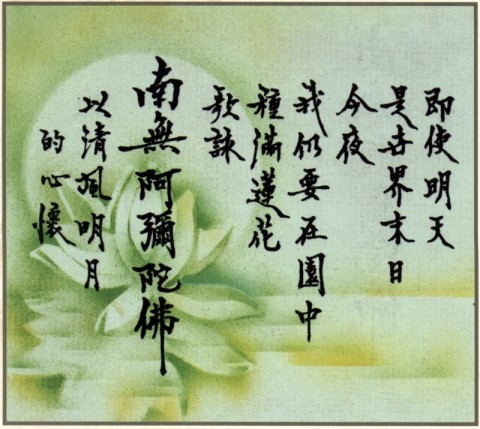 即使明天
是世界末日
今夜
我仍要在園中
種滿蓮花
歌詠
南無阿彌陀佛
以清風明月
的心懷